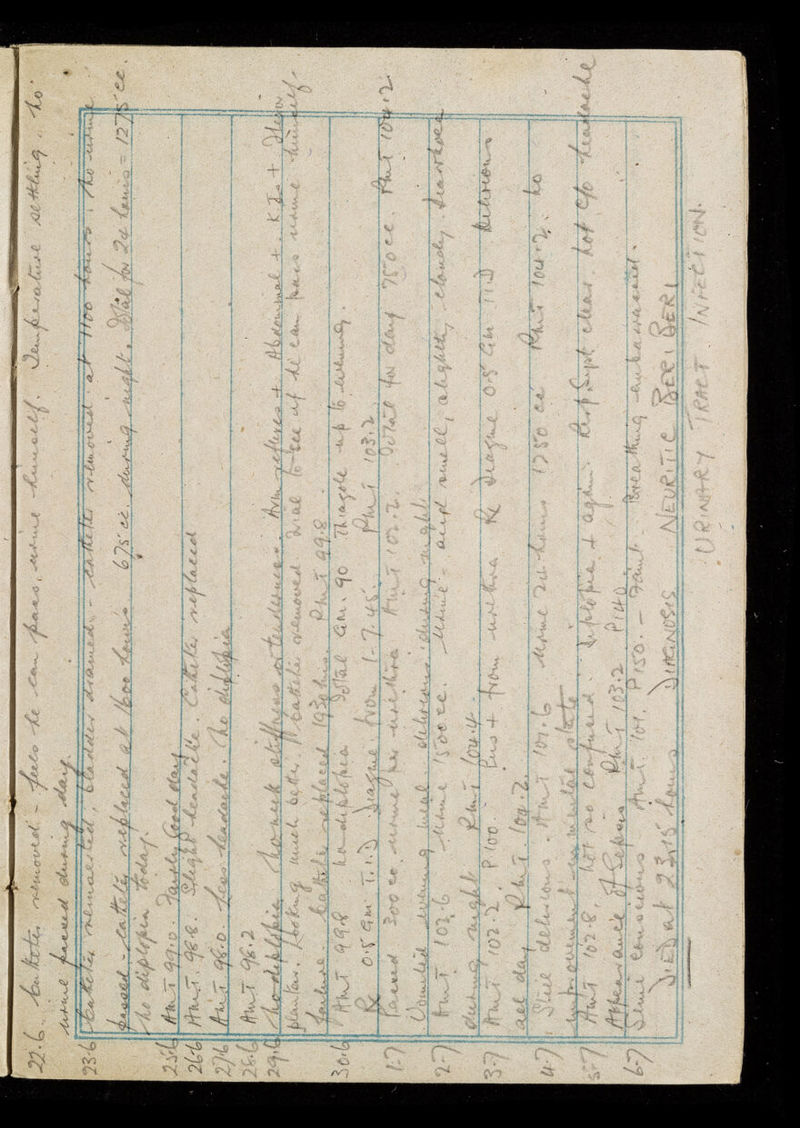 22.6. Catheter removed - feels he can pass urine himself. Temperature settling. No
urine passed during day.
23.6 Catheter reinserted, bladder drained. - catheter removed at 1100 hours. No urine
passed - catheter replaced at 1600 hours 675 cc during night. Total for 24 hours = 1275 cc.
No diplopia today.
25.6 AmT 99.0. Fairly good day
26.6 AmT. 98.8. Slight headache. Catheter replaced
27.6 AmT 98.0 Less headache. No diplopia
28.6 AmT 98.2
29.6 No diplopia. No neck stiffness or tenderness. Arm reflexes + Abdominal +. KJs + Flexor
plantar. Looking much better. Catheter removed trial to see if he can pass urine himself.
Failure. Catheter replaced 1930 hrs. PmT 99.8.
30.6 AmT 99.8 No diplopia Total Gm. 90 Thiazole up to evening.
Rx 0.5 Gm T.I.D Dragee from 1-7-45. PmT 103.2
1-7 Passed 300 cc urine per urethra AmT 102.2. Total for day 750 cc. PmT 104.2
Vomited evening meal. delirious during night.
2-7 AmT 102.6 Urine 1500 cc. Urine - acid smell, slightly cloudy. Diarrhoea
during night PmT 104.4.
3-7 AmT 102.2. P100. Pus + from urethra Rx Dragee 0.5 Gm TID Delirious
all day PmT 104.2
4-7 Still delirious. AmT 101.6 Urine 24 hours 1750 cc PmT 104.2. No
improvement in mental state
5-7 AmT 102.8, Not so confused. Diplopia + again. Resp Syst clear. Not c/o headache
Appearance of Sepsis PmT 103.2 P140
6-7 Semi conscious AmT 101. P150. - Faint. Breathing embarrassed.
DIED at 23.15 hours DIAGNOSIS NEURITIC BERI BERI
URINARY TRACT INFECTION.